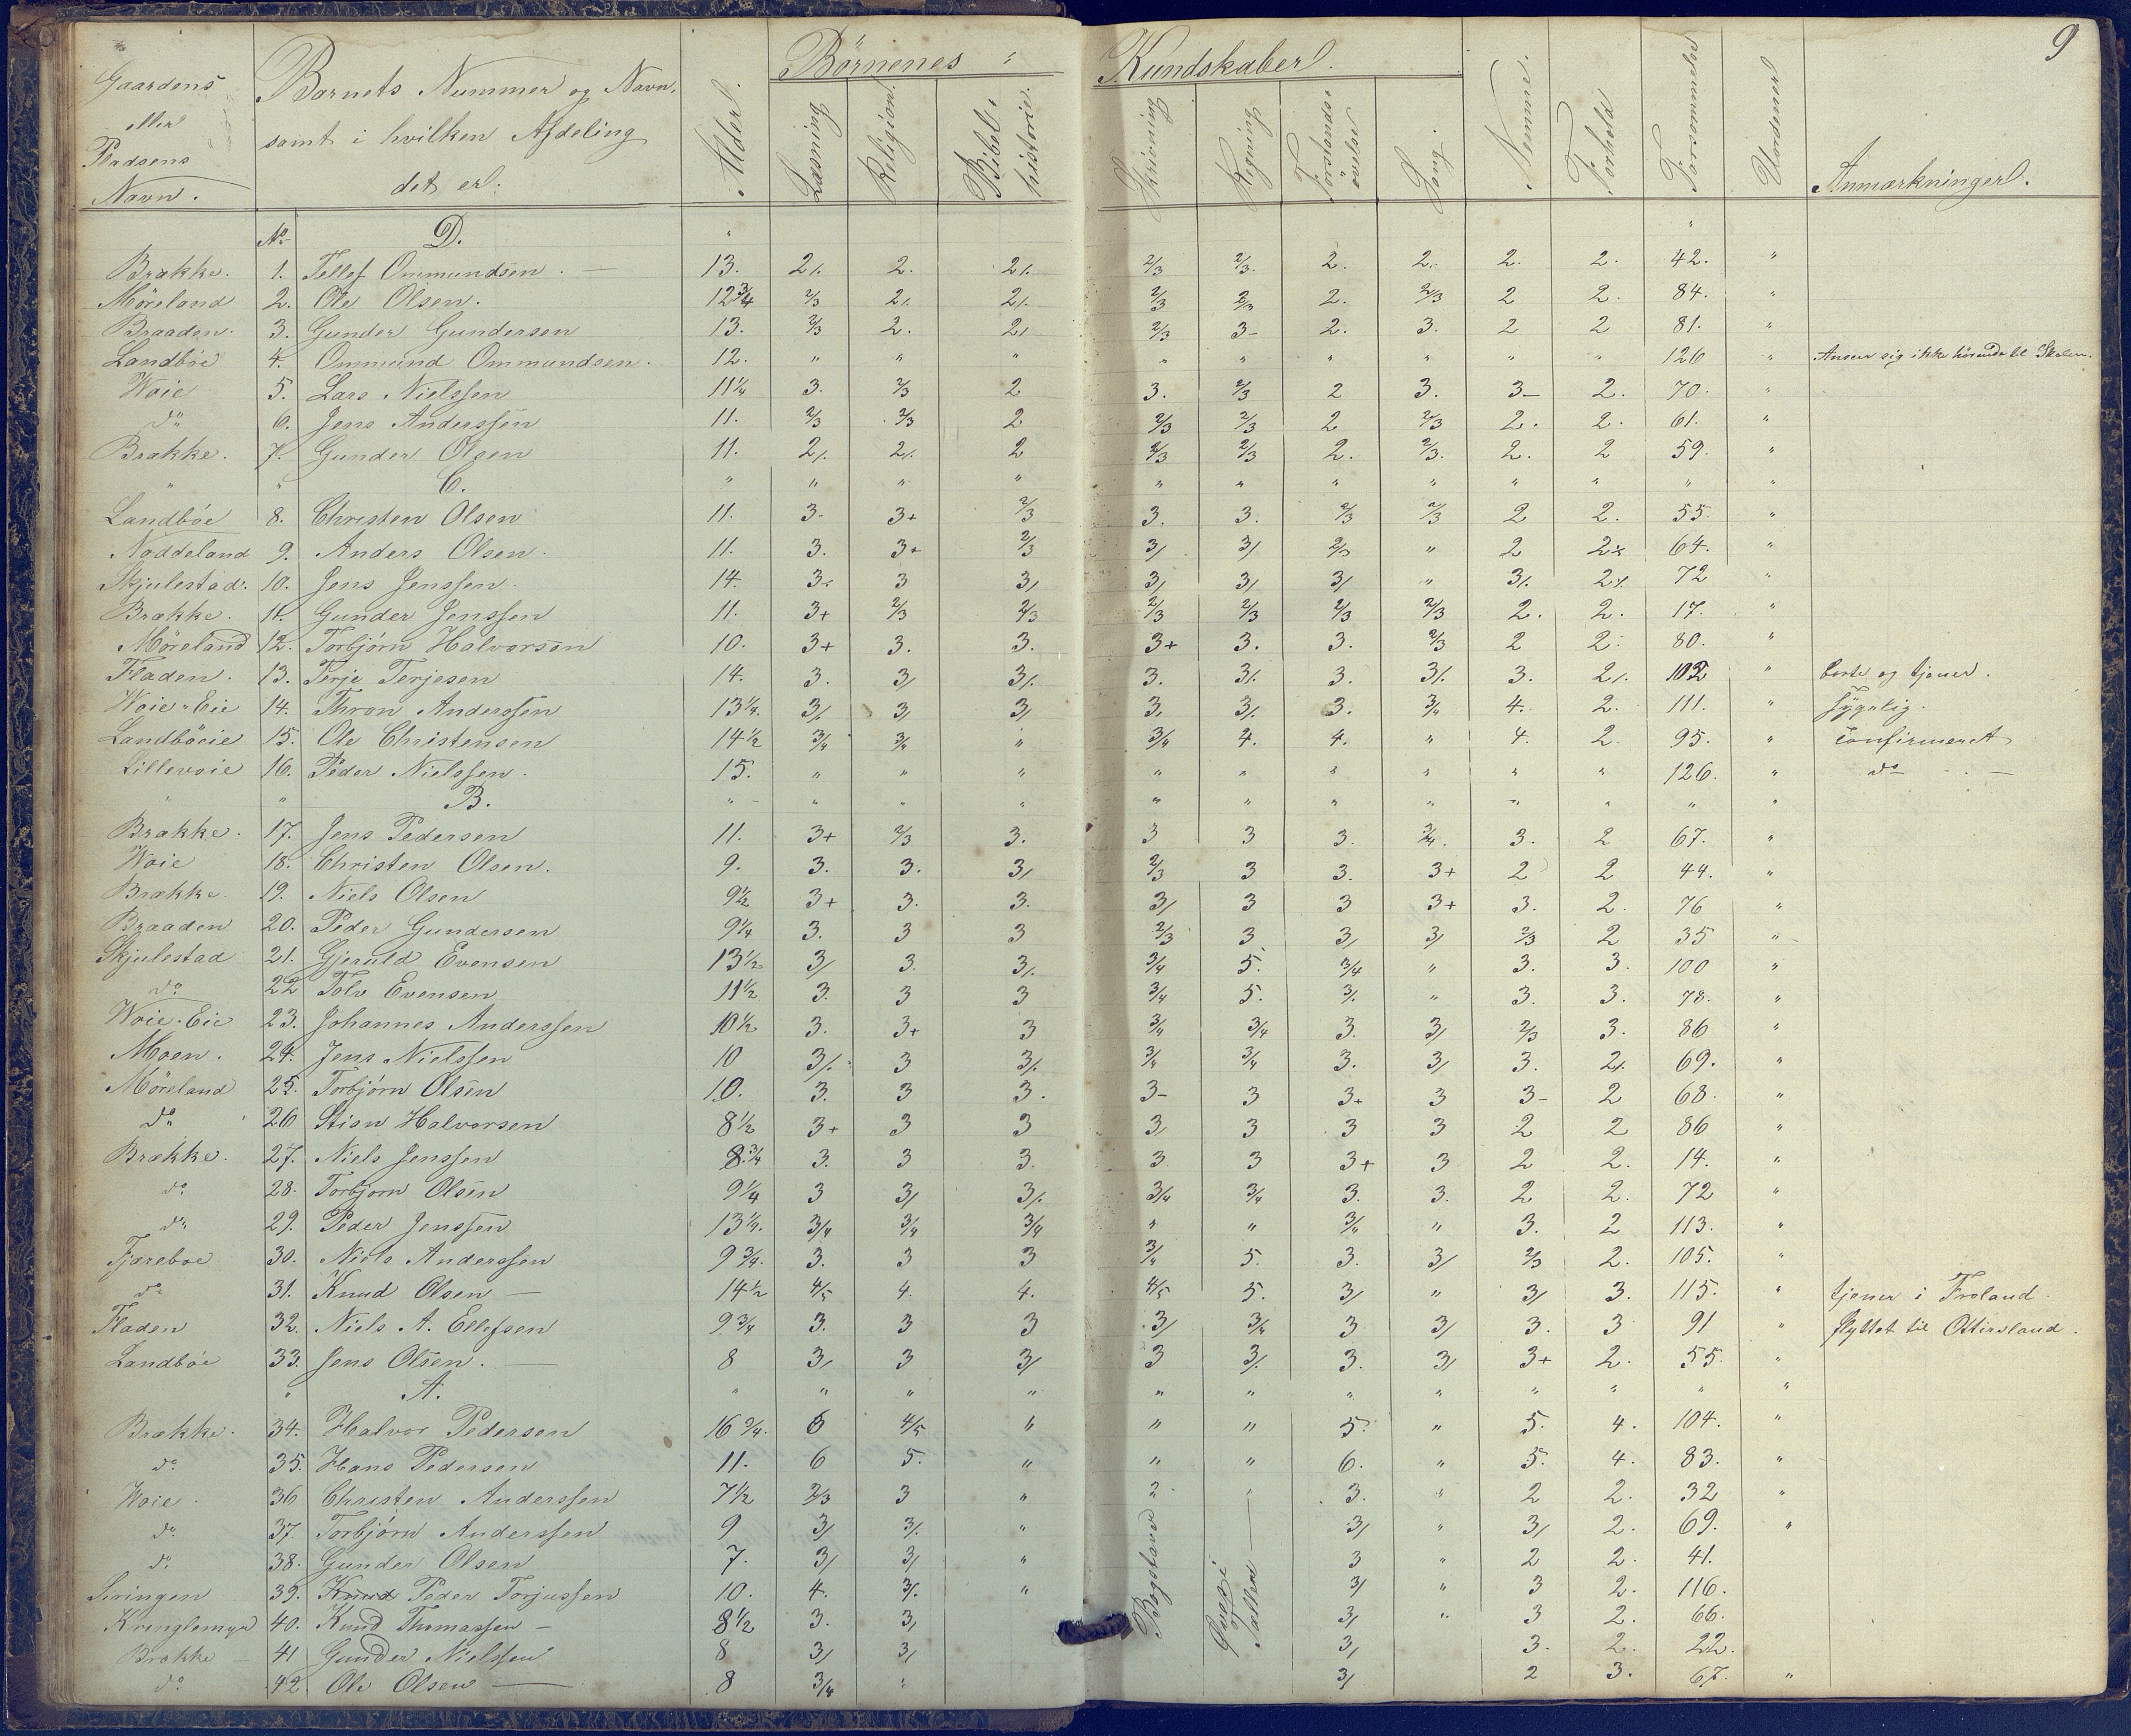 9
Gaardens eller Pladsens Navn. Barnets Nummer og Navn, samt i hvilken Afdeling det er. Alder. Børnenes Kundskaber. Læsning Religion. Bibelhistorie. Skrivning Regning Forstandsøvelse Sang. Nemme. Forhold Forsømmelse Uordener Anmærkninger.
No D. "
Brække. 1. Tellef Ommundsen. — 13. 2/. 2. 2/. 2/3 2/3. 2. 2. 2. 2. 42. "
Möreland 2. Ole Olsen. 12 3/4 2/3 2/. 2/. 2/3 2/3 2. 2/3 2 2. 84. "
Braaden. 3. Gunder Gundersen 13. 2/3 2. 2/ 2/3 3- 2. 3. 2 2 81. "
Landböe 4. Ommund Ommundsen. 12. " " " " " " " " " 126 " Anseer sig ikke hörende til Skolen.
Woie 5. Lars Nielssen 11 1/4 3. 2/3 2 3. 2/3 2 3. 3- 2. 70. "
do 6. Jens Anderssen 11. 2/3 2/3 2 2/3 2/3 2 2/3 2. 2. 61. "
Brække. 7. Gunder Olsen 11. 2/. 2/. 2 2/3 2/3 2. 2/3. 2. 2 59. "
" " C. " " " " " " " " " " " "
Landböe 8. Christen Olsen 11. 3- 3+ 2/3 3. 3. 2/3 2/3 2 2. 55. "
Noddeland 9. Anders Olsen. 11. 3. 3+ 2/3 3/ 3/ 2/3 " 2 2/. 64. "
Skjulestad. 10. Jens Jenssen. 14. 3- 3 3/ 3/ 3/ 3/ " 3/. 2/. 72 "
Brække. 11. Gunder Jenssen 11. 3+ 2/3 2/3 2/3 2/3 2/3 2/3 2. 2. 17. "
Möreland 12. Torbjörn Halvorsön 10. 3+ 3. 3. 3+ 3. 3. 2/3 2 2. 80. "
Fladen. 13. Terje Terjesen 14. 3. 3/ 3/. 3. 3/. 3. 3/. 3. 2/. 102 " borte og tjener.
Woie-Eie 14. Thron Anderssen 13 1/4. 3/. 3/ 3/ 3, 3/. 3. 3/4 4. 2. 111. " Sygelig.
Landböeie 15. Ole Christensen 14 1/2 3/4 3/4 " 3/4 4. 4. " 4. 2. 95. " Confirmeret
Lillevoie 16. Peder Nielssen. 15. " " " " " " " " " 126. " do —
" " B. " " " " " " " " " " " "
Brække. 17. Jens Pedersen 11. 3+ 2/3 3. 3 3 3. 3/4. 3. 2 67. "
Woie 18. Christen Olsen. 9. 3. 3. 3/ 2/3 3 3. 3+ 2 2 44. "
Brække. 19. Niels Olsen 9 1/2 3+ 3. 3. 3/ 3 3 3+ 3. 2. 76 "
Braaden 20. Peder Gundersen 9 1/4 3. 3 3 2/3 3 3/ 3/ 2/3 2 35 "
Skjulestad 21. Gjeruld Evensen 13 1/2 3/ 3. 3/. 3/4 5. 3/4 " 3. 3. 100 "
do 22 Tolv Evensen 11 1/2 3. 3 3 3/4 5. 3/. " 3. 3. 78. "
Woie-Eie 23. Johannes Anderssen 10 1/2 3. 3+ 3 3/4 3/4 3. 3/ 2/3 3. 86 "
Moen. 24. Jens Nielssen 10 3/. 3 3/. 3/4 3/4 3. 3/ 3. 2/. 69. "
Möreland 25. Torbjörn Olsen 10. 3. 3 3. 3- 3 3+ 3 3- 2 68. "
do 26 Stian Halvorsen 8 1/2 3+ 3 3 3/ 3 3 3 2 2 86 "
Brække. 27. Niels Jenssen 8 3/4 3. 3 3. 3 3 3+ 3 2 2. 14. "
do 28. Torbjorn Olsen 9 1/4 3 3/ 3/. 3/4 3/4 3. 3. 2 2. 72 "
do 29. Peder Jenssen 13 1/4. 3/4 3/4 3/4 " " 3/4 " 3. 2 113. "
Fjæreboe 30. Niels Anderssen 9 3/4. 3. 3 3 3/4 5. 3. 3/ 2/3 2. 105. "
do 31. Knud Olsen — 14 1/2 4/5 4. 4. 4/5 5. 3/ " 3/ 3. 115. " tjener i Froland.
Fladen 32. Niels A. Ellefsen 9 3/4 3. 3 3 3/ 3/4 3 3/ 3. 3 91 " flyttet til Ottersland.
Landböe 33. Jens Olsen. — 8 3/ 3 3/ 3 3/. 3. 3/ 3+ 2. 55. "
" A. " " " " " " " " " " " "
Brække. 34. Halvor Pedersen 16 3/4. 6 4/5 " " " 5. " 5. 4. 104. "
do 35. Hans Pedersen 11. 6 5. " " " 6. " 5. 4. 83. "
Woie. 36 Christen Anderssen 7 1/2 2/3 3 " 2 " 3. " 2 2. 32 "
do 37. Torbjörn Anderssen 9 3/ 3/. " Bogstaver Svag i Tallene 3/ " 3/ 2. 69. "
do 38. Gunder Olsen 7. 3/ 3/ " 3 " 2 2. 41.
Siringen 39. Knud Peder Torjussen 10. 4. 3/. " 3/ " 3 2. 116.
Kringlemyr 40. Knud Thomassen — 8 1/2 3. 3/ 3/ " 3 2. 66.
Brække — 41 Gunder Nielssen 8 3/ 3/ 3/ 3. 2. 22.
do 42 Ole Olsen — 8 3/4 " 3/ 2 3. 67. "